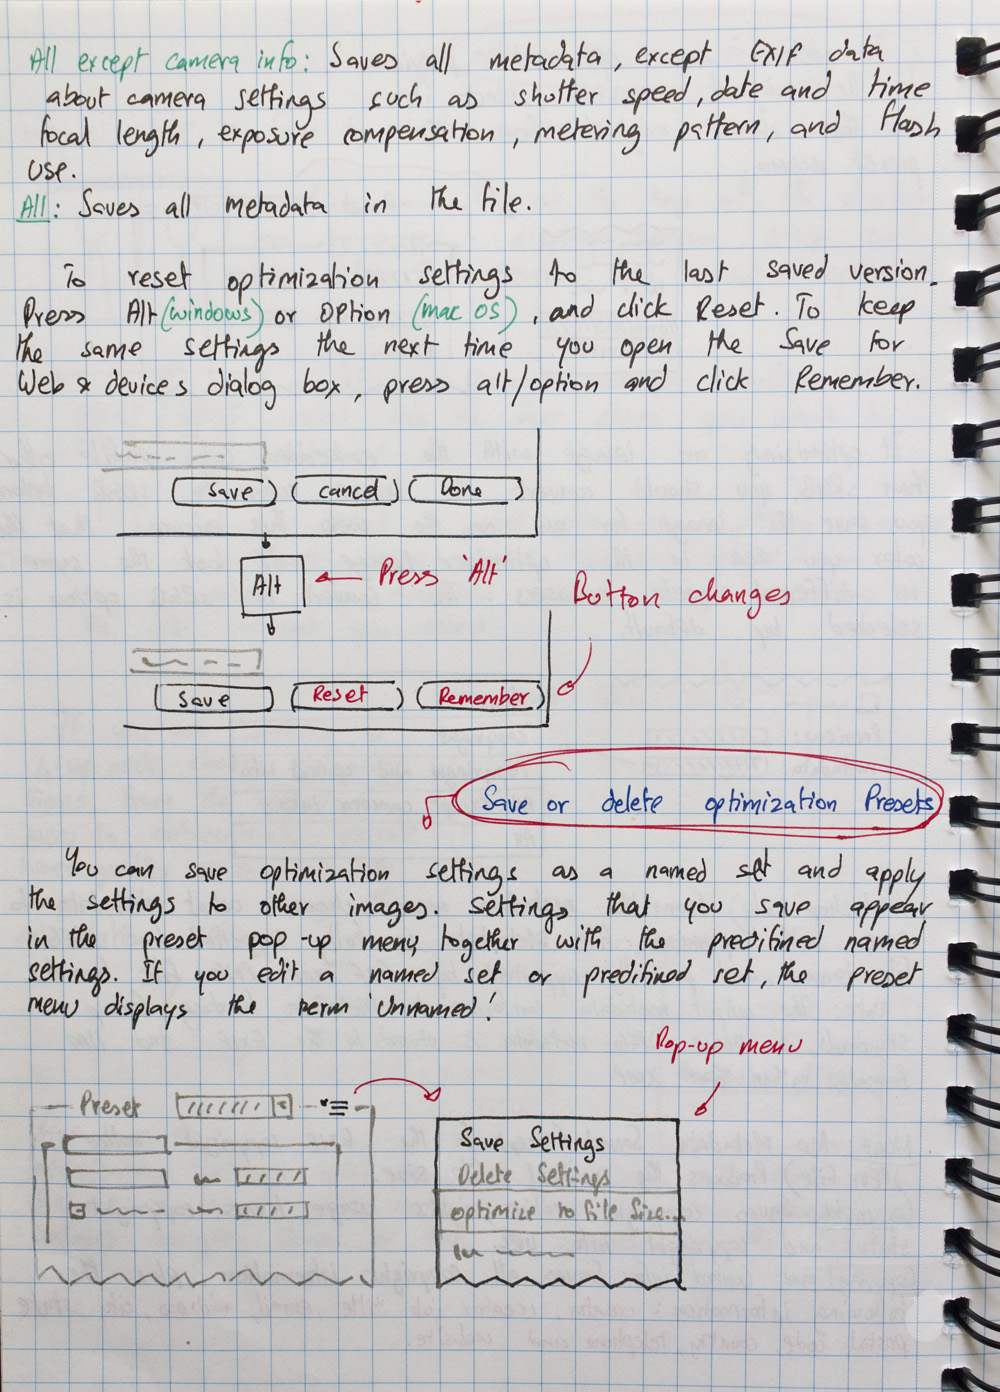 All except camera info: Saves all metadata, except EXIF data
about camera settings such as shutter speed, date and time
focal length, exposure compensation, metering pattern, and flash
use.
All: Saves all metadata in the file.
To reset optimization settings to the last saved version.
Press Alt (windows) or Option (mac OS), and click Reset. To keep
the same settings the next time you open the Save for
Web & devices dialog box, press alt/option and click Remember.
Save cancel Done
Alt Press 'Alt'
Button changes
Save Reset Remember
Save or delete optimization Presets
You can save optimization settings as a named set and apply
the settings to other images. Settings that you save appear
in the preset pop-up menu, together with the predifined named
settings. If you edit a named set or predifined set, the preset
menu displays the term 'Unnamed'.
Pop-up menu
Preset
Save Settings
Delete Settings
optimize to file Size...